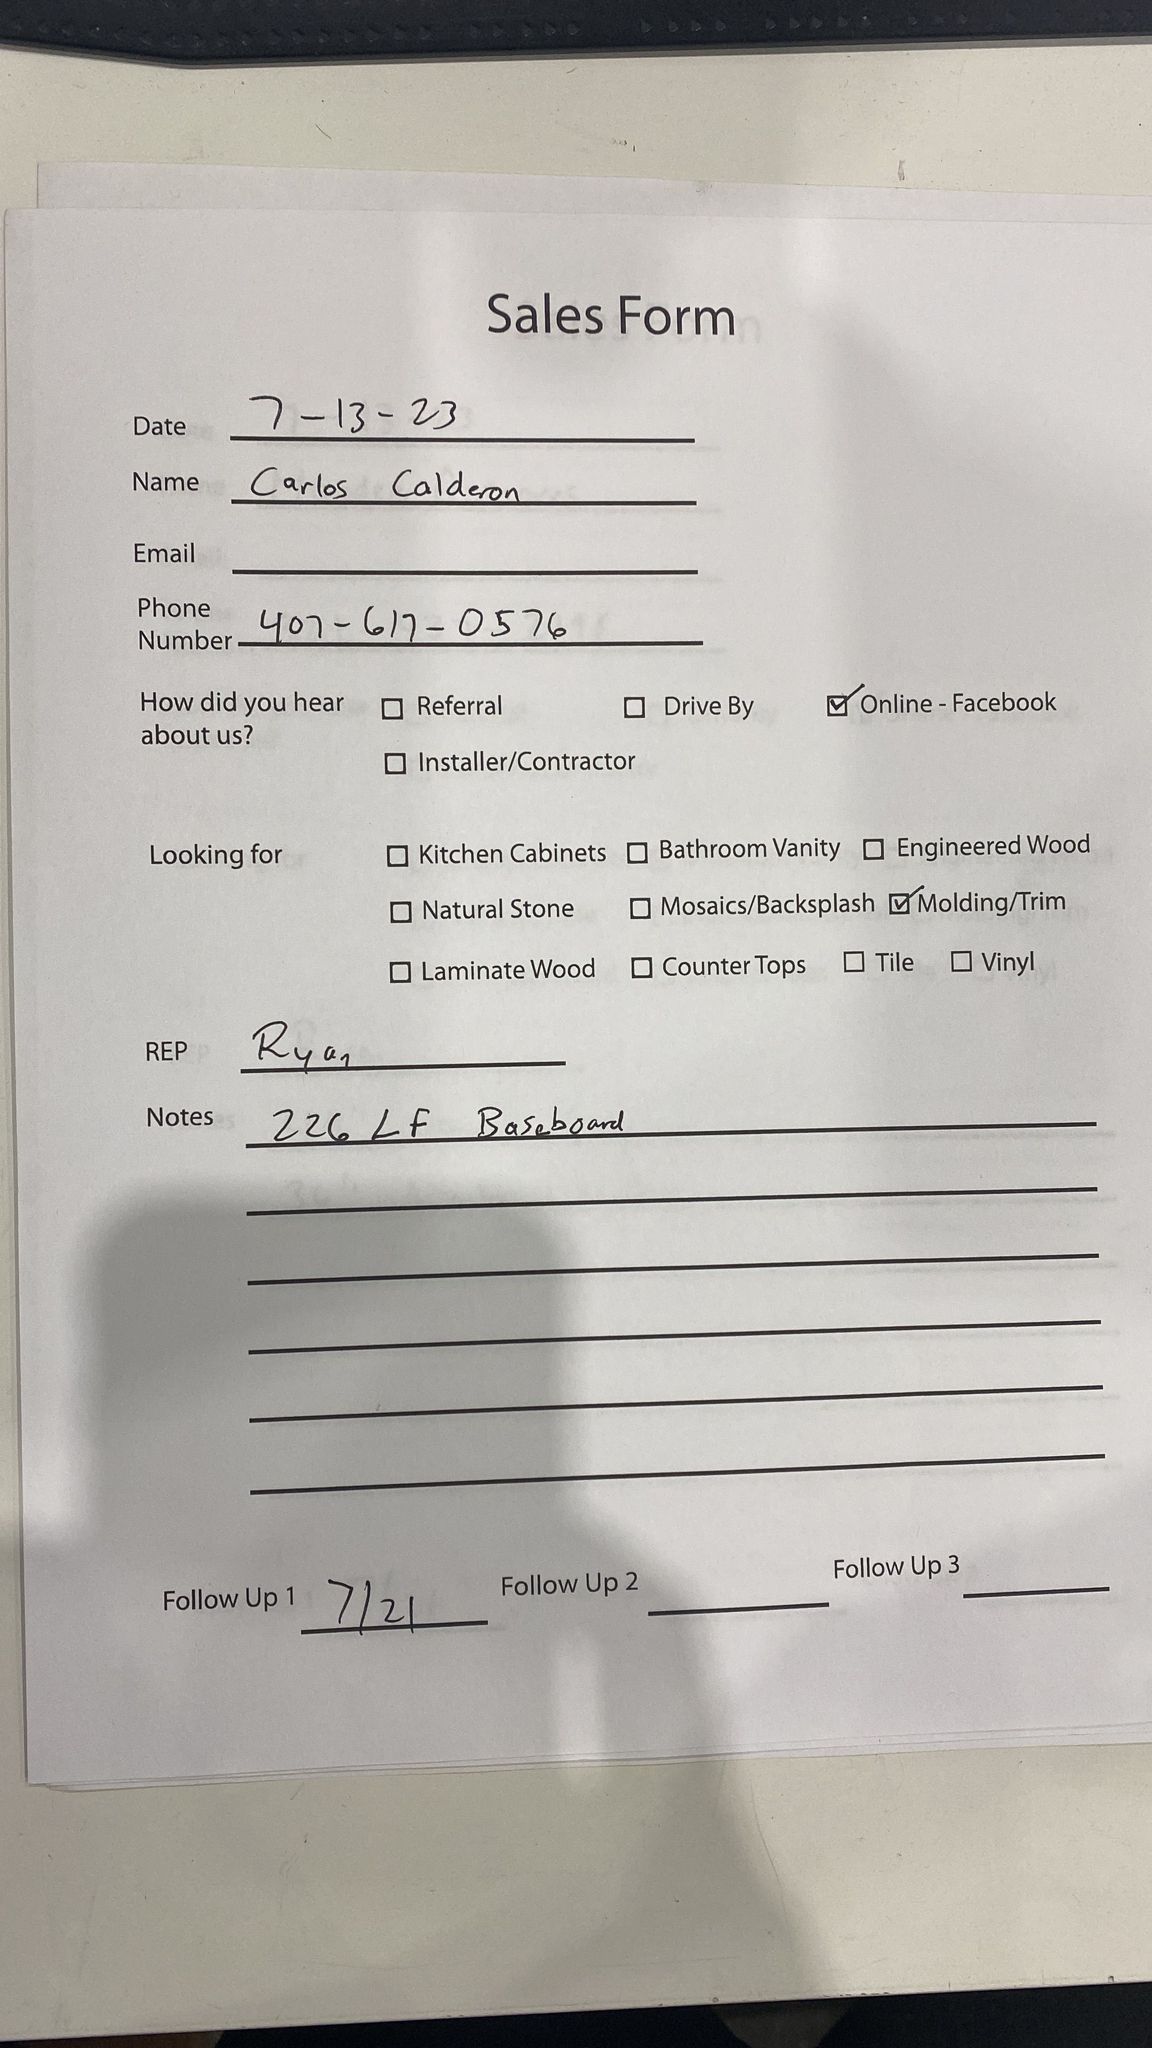 Sales Form
Date 7-13-23
Name Carlos Calderon
Email
Phone
Number 407-617-0576
How did you hear ☐ Referral ☐ Drive By ☑ Online - Facebook
about us?
☐ Installer/Contractor
Looking for ☐ Kitchen Cabinets ☐ Bathroom Vanity ☐ Engineered Wood
☐ Natural Stone ☐ Mosaics/Backsplash ☑ Molding/Trim
☐ Laminate Wood ☐ Counter Tops ☐ Tile ☐ Vinyl
REP Ryan
Notes 226 LF Baseboard
Follow Up 1 7/21 Follow Up 2 Follow Up 3